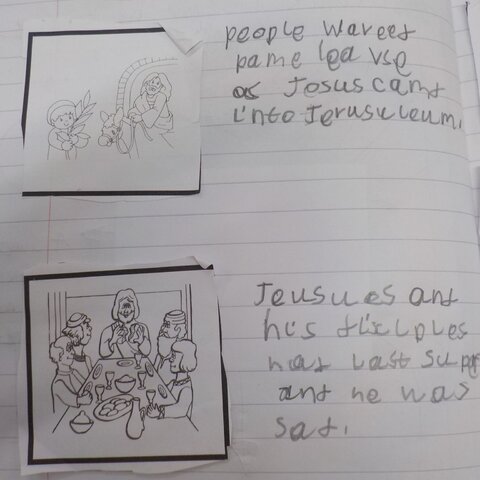 people waveet
pame leavse
as Josus camt
into Jerusuleum.
Jeusues ant
his tixlples
hat last supper
ant he was
sat.